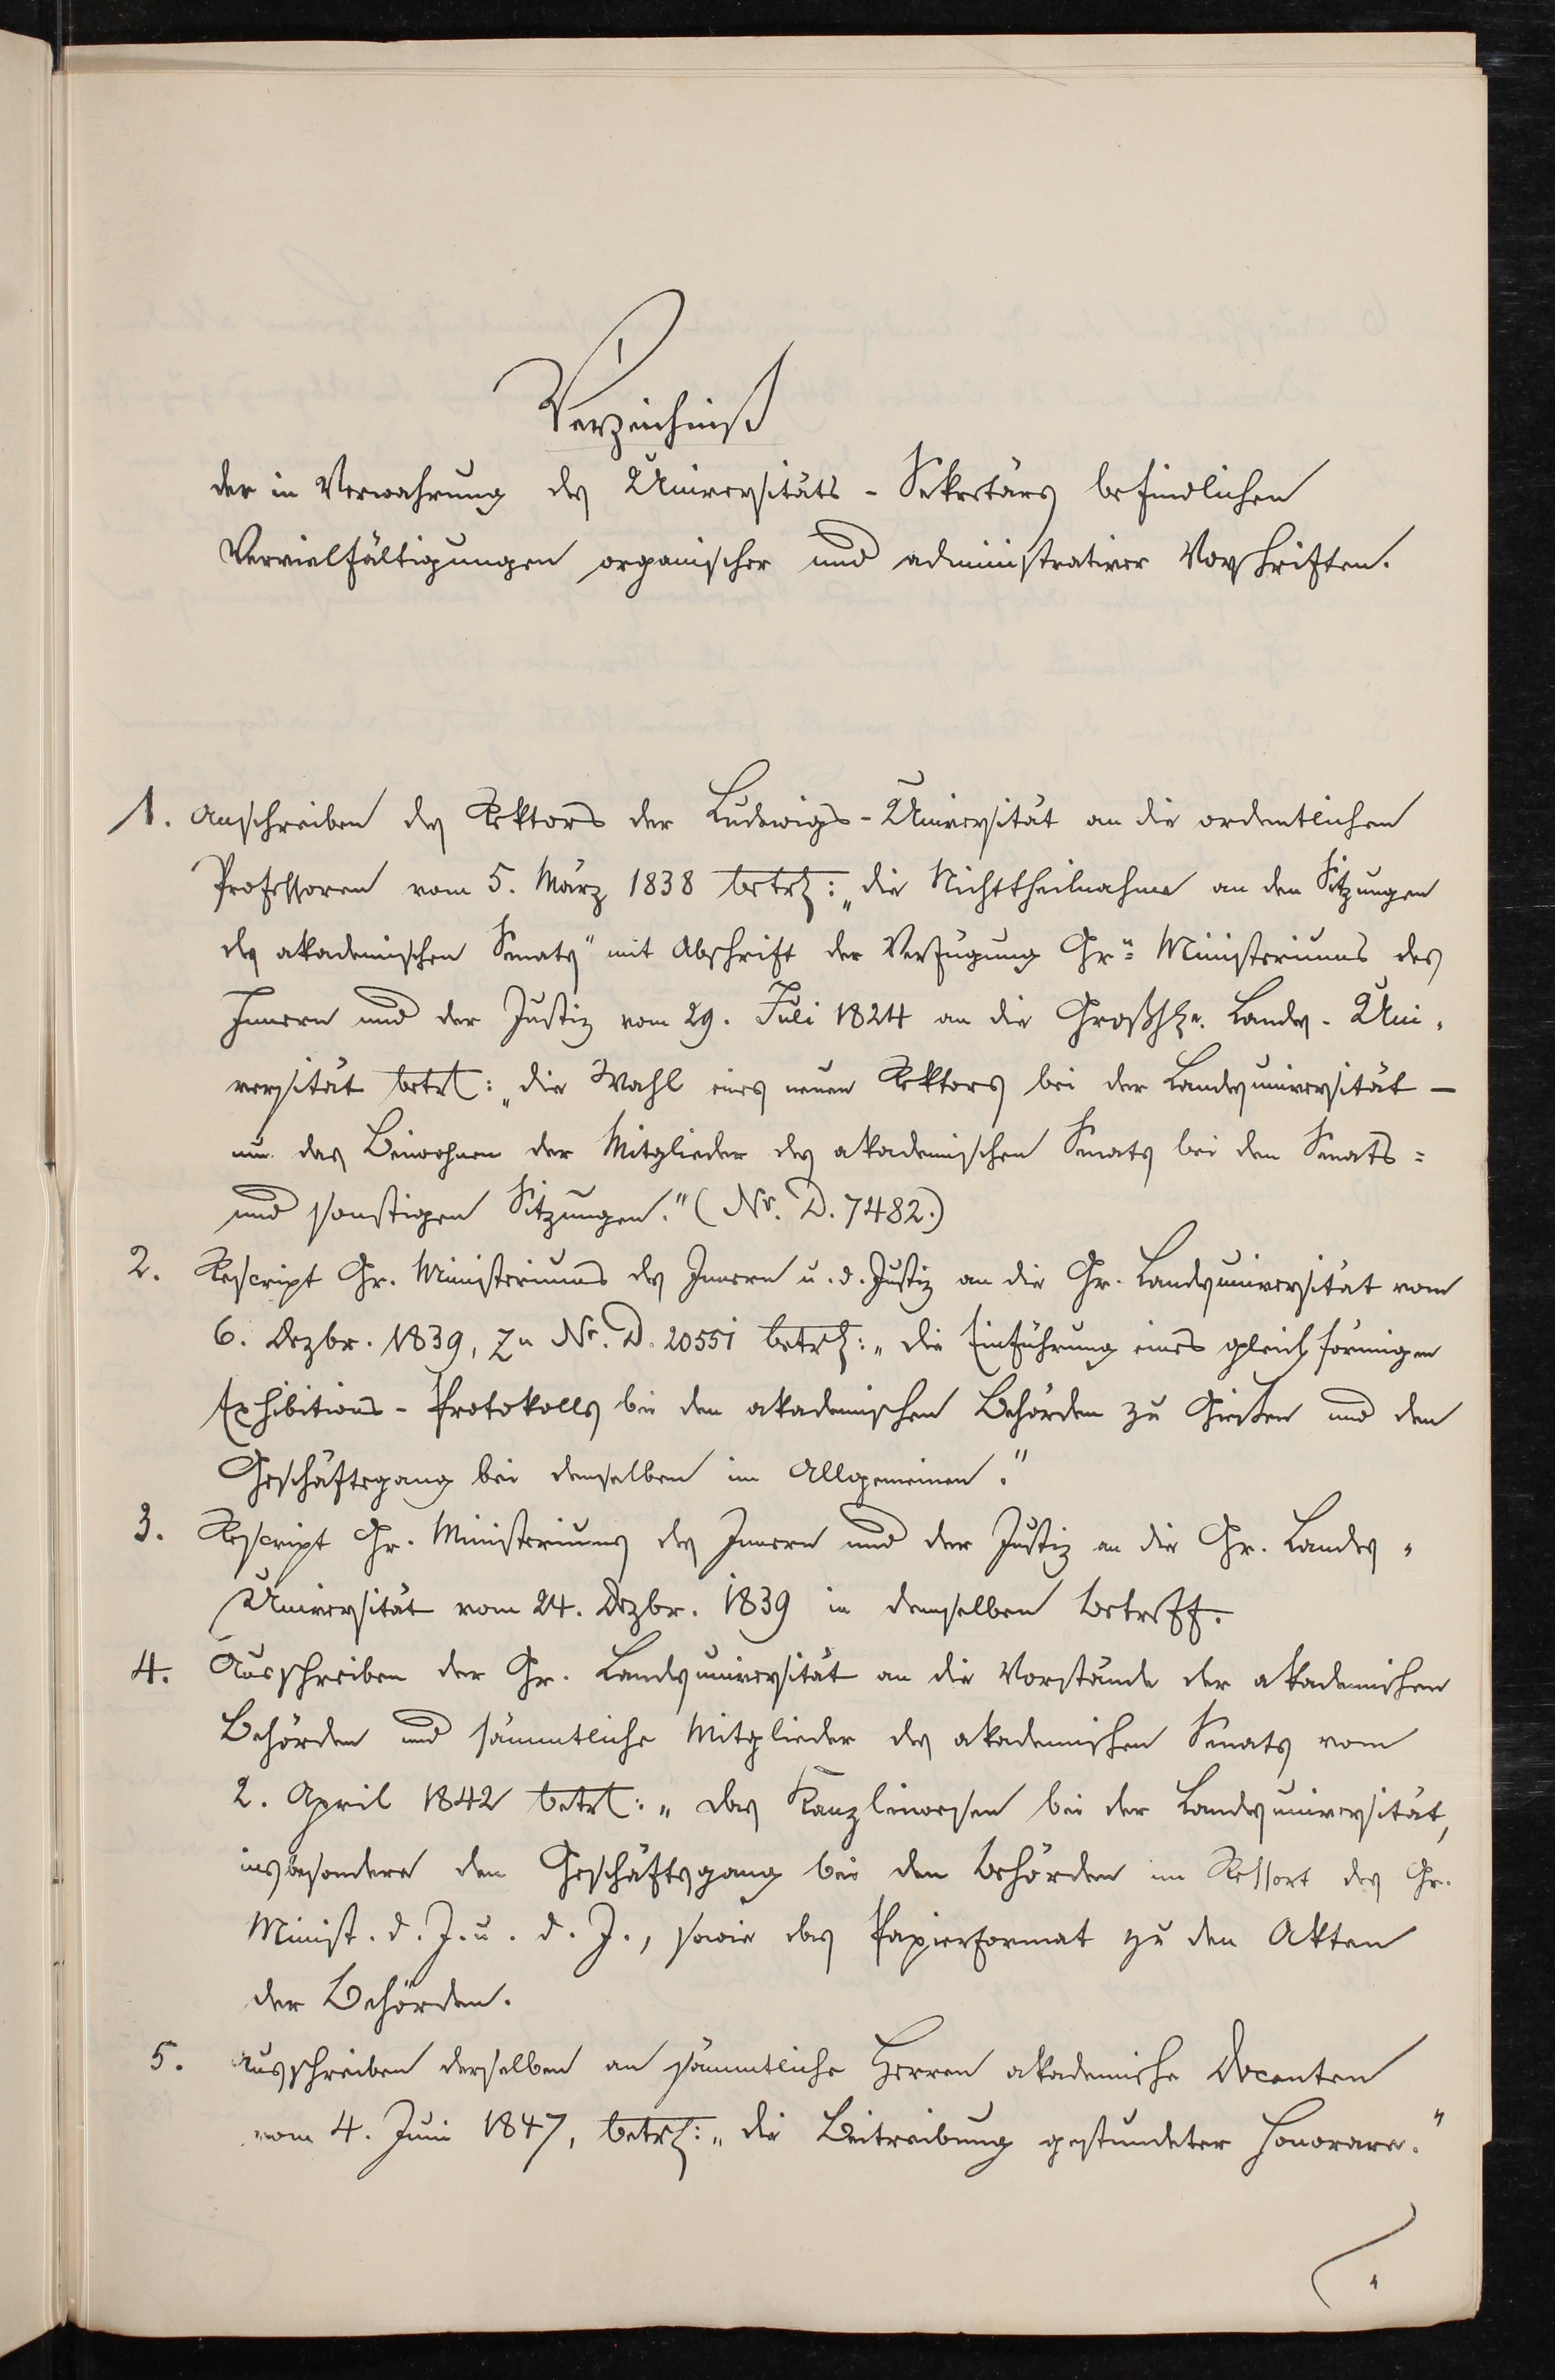 Verzeichniß
der in Verwahrung des Universitäts-Sekretärs befindlichen
Vervielfältigungen organischer und administrativer Vorschriften.
1. Anschreiben des Rektors der Ludewigs-Universität an die ordentlichen
Professoren vom 5. März 1838 betr.: „die Nichttheilnahme an den Sitzungen
des akademischen Senats" mit Abschrift der Verfügung Gr. Ministeriums des
Innern und der Justiz vom 29. Juli 1824 an die Großhz. Landes-Uni-
versität betr.: „die Wahl eines neuen Rektors bei der Landesuniversität –
nun das Beiwohnen der Mitglieder des akademischen Senats bei den Senats=
und sonstigen Sitzungen." (Nr. D. 7482.)
2. Rescript Gr. Ministeriums des Innern u. d. Justiz an die Gr. Landesuniversität vom
6. Dezbr. 1839, zu Nr. D. 20551 betr.: „die Einführung eines gleichförmigen
Exhibitions-Protokolls bei den akademischen Behörden zu Gießen und den
Geschäftsgang bei denselben im Allgemeinen."
3. Rescript Gr. Ministeriums des Innern und der Justiz an die Gr. Landes-
Universität vom 24. Dezbr. 1839 in demselben Betreff.
4. Ausschreiben der Gr. Landesuniversität an die Vorstände der akademischen
Behörden und sämmtliche Mitglieder des akademischen Senats vom
2. April 1842 betr.: „das Kanzleiwesen bei der Landesuniversität,
insbesondere den Geschäftsgang bei den Behörden im Ressort des Gr.
Minist. d. J. u. d. J., sowie das Papierformat zu den Akten
der Behörden.
5. Ausschreiben derselben an sämmtliche Herren akademische Docenten
vom 4. Juni 1847, betr.: „die Beitreibung gestundeter Honorare."